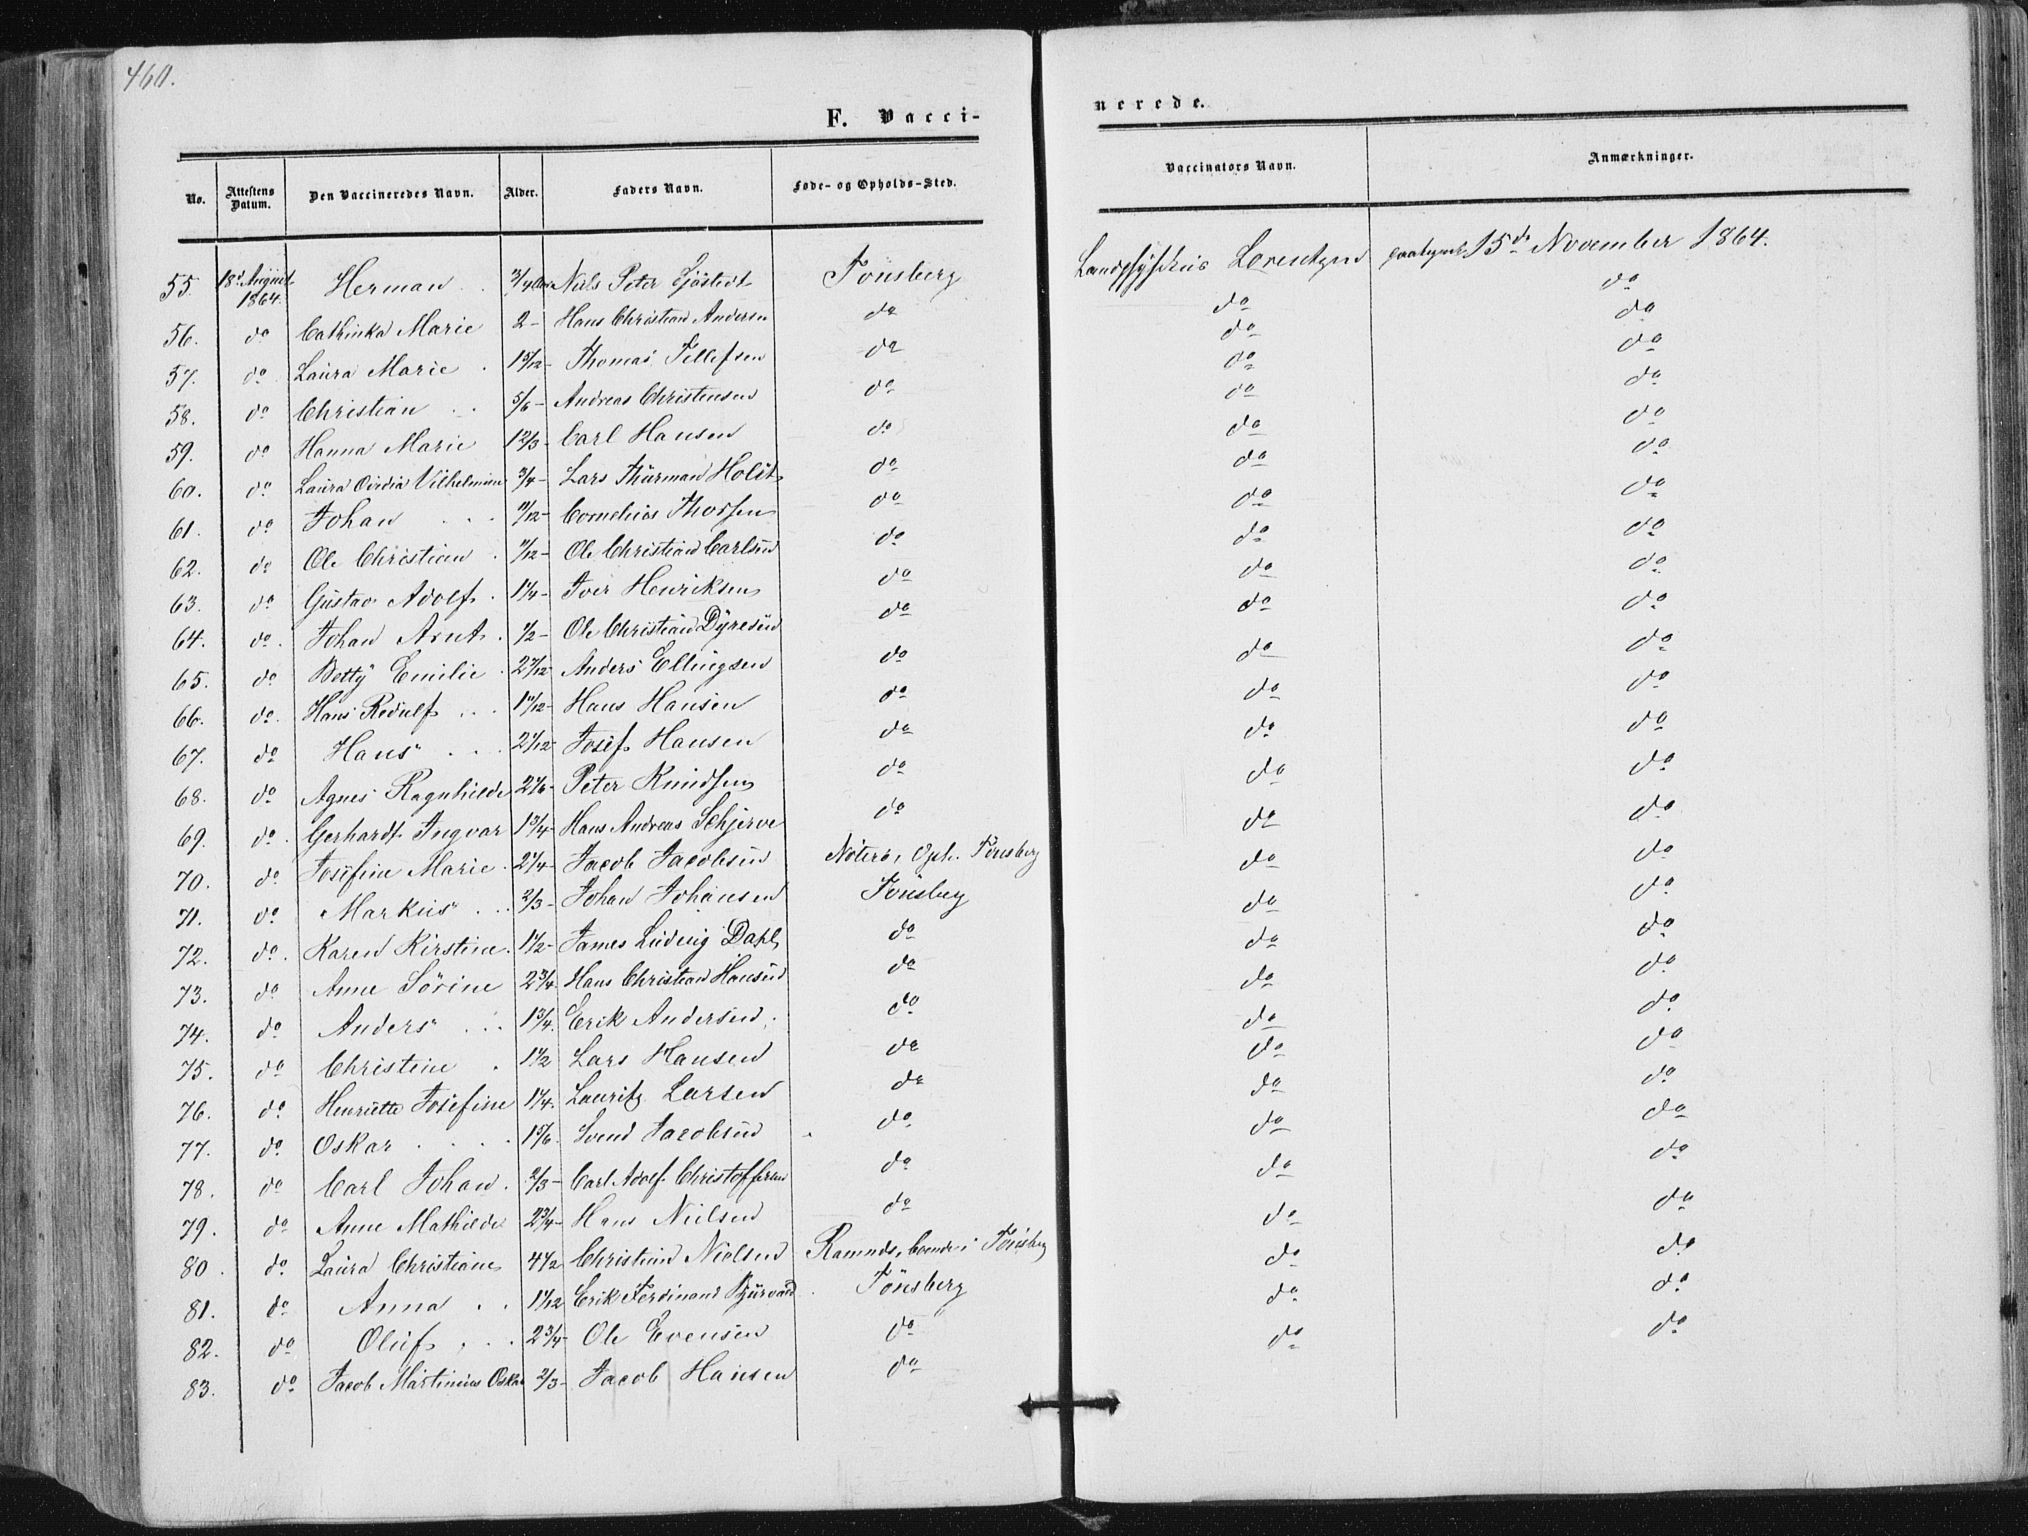 460.
F. Vacci-
nerede.
No. Attestens Datum. Den Vaccineredes Navn. Alder. Faders Navn. Føde- og Opholds-Sted. Vaccinators Navn. Anmærkninger.
55. 18d August 1864. Herman 3/4 Niels Peter Sjöstedt Tönsberg Landphysikus Lorentzen 15de November 1864.
56. do Cathinka Marie 2- Hans Christian Andersen do do do
57. do Laura Marie 1 5/12- Thomas Tellefsen do do do
58. do. Christian 5/6- Andreas Christensen do do do
59. do Hanna Marie 1 2/3- Carl Hansen do do do
60. do. Laura Vilhelmine 3/4- Lars Thurman Holst do do do
61. do Johan 11/12- Cornelius Thorsen do do do
62. do Ole Christian 7/12- Ole Christian Carlsen do do do
63. do Gustav Adolf 1 1/4- Iver Henriksen do do do
64. do. Johan Arnt 1/2- Ole Christian Dyresen do do do
65. do Betty Emilie 2 7/12- Anders Ellingsen do do do
66. do. Hans Redulf 1 1/12- Hans Hansen do do do
67. do Hans 2 1/12- Josef Hansen do do do
68. do Agnes Ragnhilde 2 1/6- Peter Knudsen do do do
69. do. Gerhardt Ingvar 1 3/4- Hans Andreas Schjerve do do do
70. do Josefine Marie 2 1/4- Jacob Jacobsen Nöterö, Oph. Tönsberg do do
71. do. Markus 2/3- Johan Johansen Tönsberg do do
72. do. Karen Kirstine 1 1/2- James Ludvig Dahl do do do
73. do Anne Sörine 2 3/4 Hans Christian Hansen do do do
74. do Anders 1 3/4. Erik Andersen do do do
75. do Christine 1 1/2 Lars Hansen do do do
76. do. Henriette Josefine 1 1/4. Lauritz Larsen do do do
77. do. Oskar 1 5/6. Svend Jacobsen do do do
78. do Carl Johan 2/3- Carl Adolf Christoffersen do do do
79. do Anne Mathilde 2 3/4- Hans Nielsen do do do
80. do. Laura Christiane 4 1/2 Christian Nielsen Ramnæs, boende i Tönsberg do do
81. do. Anna 1 1/12 Erik Ferdinand Tönsberg do do
82. do Oluf 2 3/4- Ole Evensen do do do
83. do Jacob Martinius Oskar 2/3- Jacob Hansen do